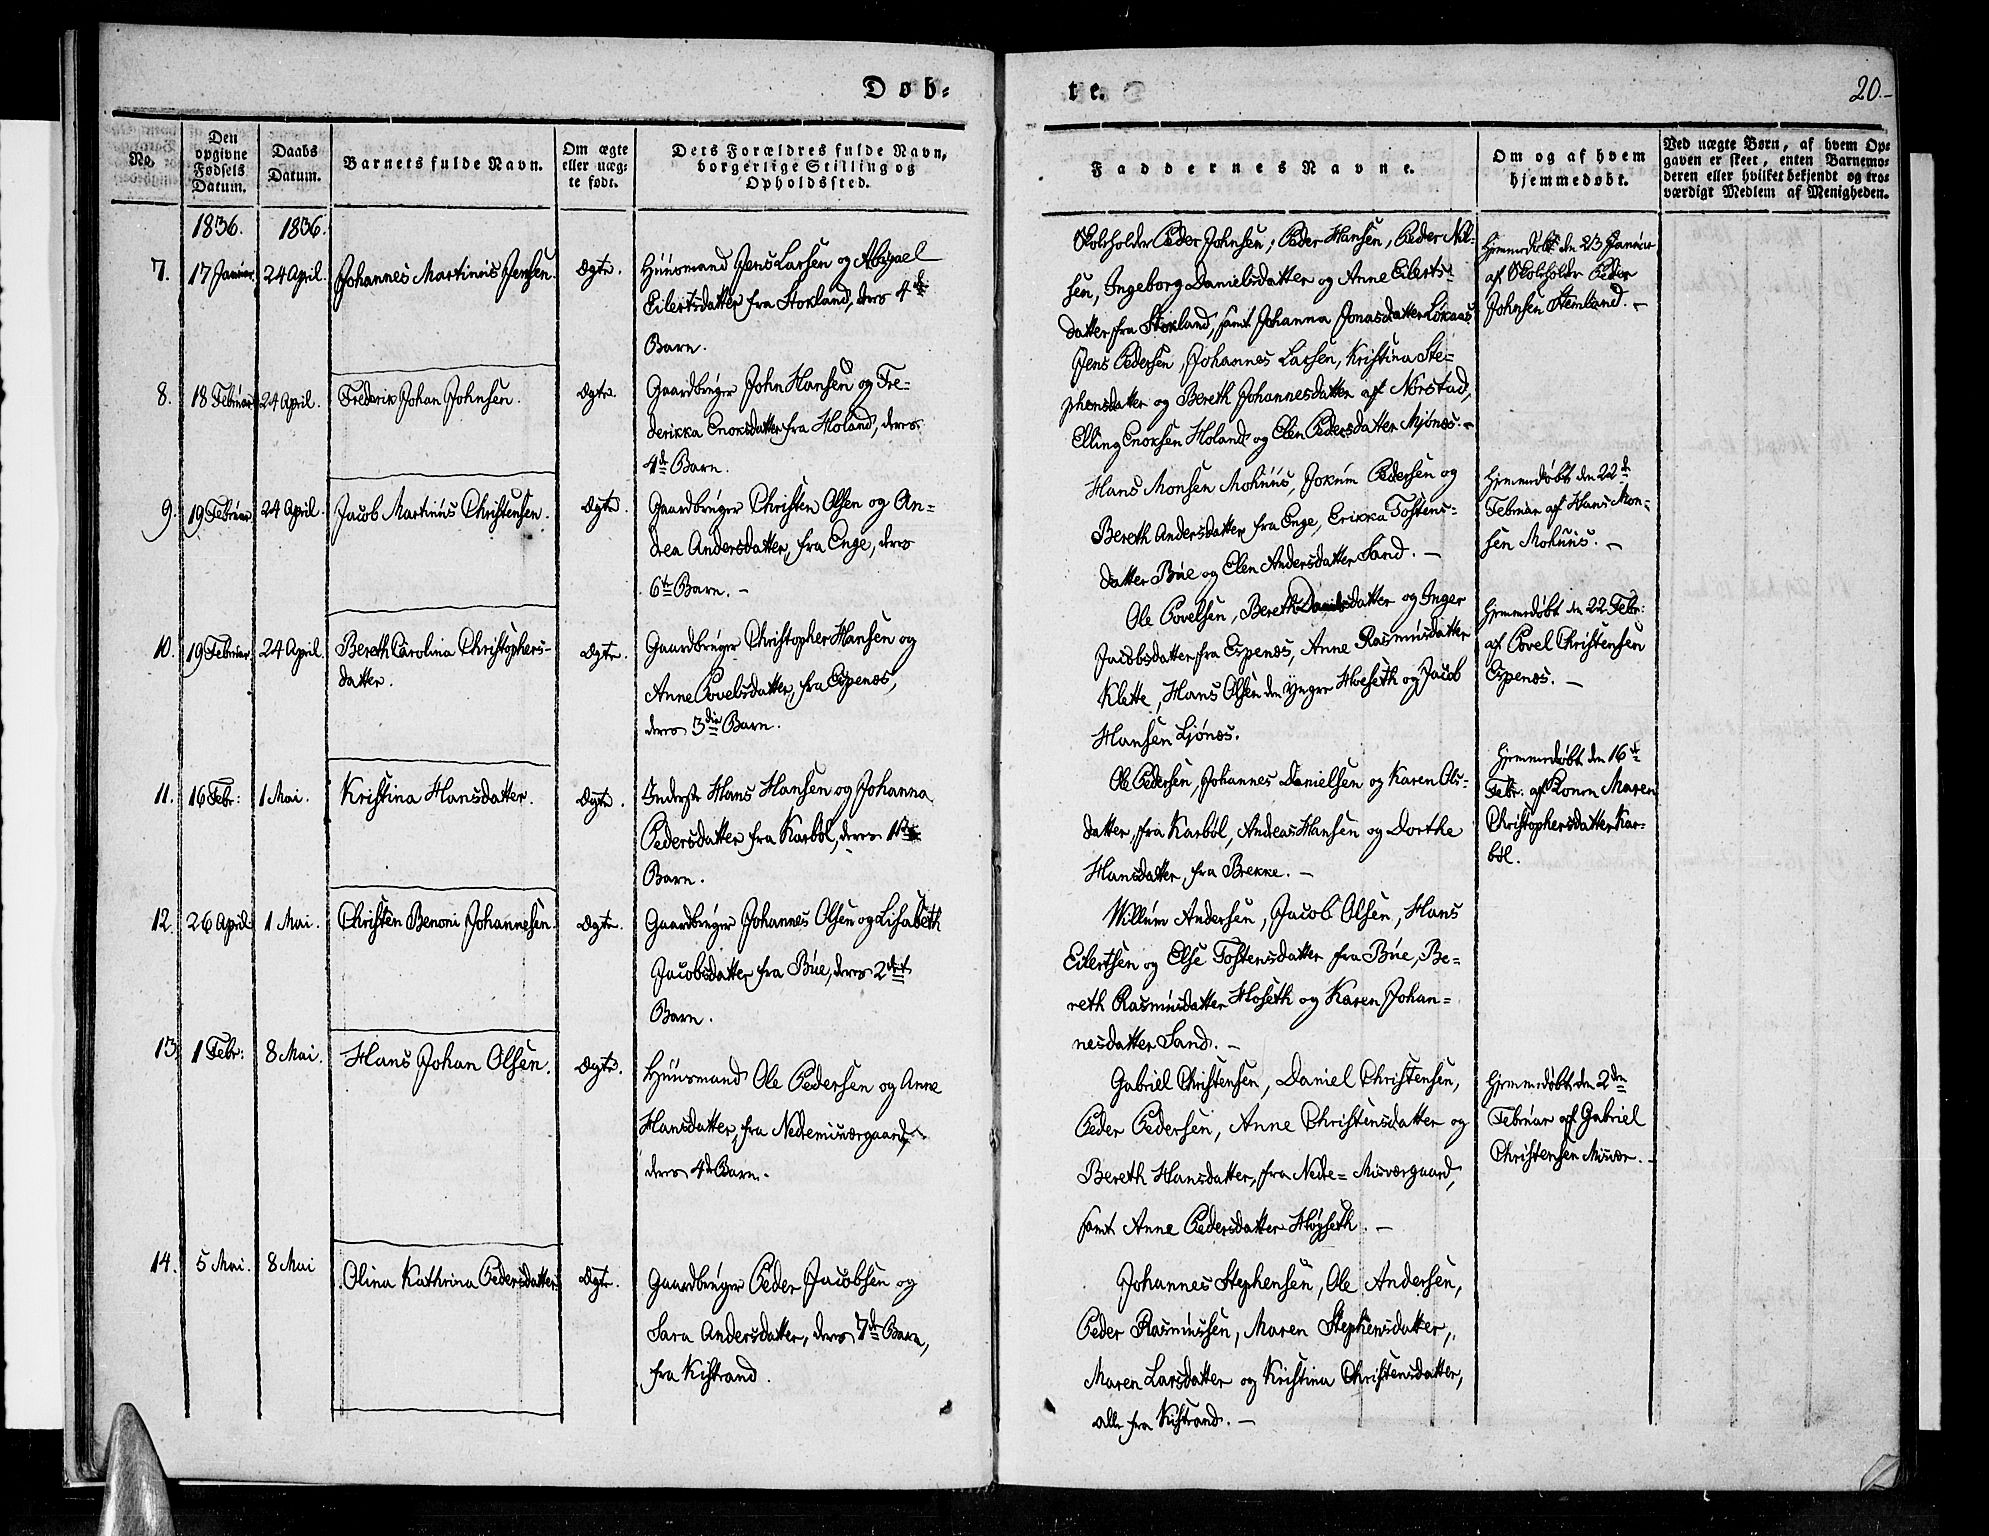 Døb-
te.
20.-
No.
Den
opgivne
Fødsels
Datum.
Daabs
Datum.
Barnets fulde Navn.
Om ægte
eller uæg-
te født.
Dets Forældres fulde Navn,
borgerlige Stilling og
Opholdssted.
Faddernes Navne.
Om og af hvem
hjemmedøbt.
Ved uægte Børn, af hvem Op-
gaven er skeet, enten Barnemo-
deren eller hvilket bekjendt og tro-
værdigt Medlem af Menigheden.
1836. 1836.
7. 17 Januar 24 April. Johannes Martinus Jensen. Ægte.
Huusmand Jens Larsen og Abigael
Eilertsdatter fra Stokland, deres 4de
Barn.
Skoleholder Peder Johnsen, Peder Hansen, Peder Nil-
sen, Ingeborg Danielsdatter og Anne Eilerts-
datter fra Stokland, samt Johanna Jonasdatter Løkaas
Hjemmedøbt den 23 Januar
af Skoleholder Peder
Johnsen Stemland. -
8. 18 Februar 24 April. Frederik Johan Johnsen. Ægte.
Gaardbruger John Hansen og Fre-
derikka Enoksdatter fra Holand, deres
4de Barn.
Jens Pedersen, Johannes Larsen, Kristina Ste-
phensdatter og Bereth Johannesdatter af Norstad,
Elling Enoksen Holand og Elen Pedersdatter Mjønæs. -
9. 19 Februar 24 April. Jacob Martinus Christensen. Ægte.
Gaardbruger Christen Olsen og An-
drea Andersdatter, fra Enge, deres
6te Barn. -
Hans Monsen Mohuus, Jokum Pedersen og
Bereth Andersdatter fra Enge, Erikka Tostens-
datter Bue og Elen Andersdatter Sand. -
Hjemmedøbt den 22de
Februar af Hans Mon-
sen Mohuus. -
10. 19 Februar 24 April. Bereth Carolina Christophers-
datter. Ægte.
Gaardbruger Christopher Hansen og
Anne Povelsdatter, fra Espenæs,
deres 3die Barn.
Ole Povelsen, Bereth Danielsdatter og Inger
Jacobsdatter fra Espenæs, Anne Rasmusdatter
Klette, Hans Olsen den yngre Hoeseth og Jacob
Hansen Ljønæs.
Hjemmedøbt den 22 Febr:
af Povel Christensen
Espenæs. -
11. 16 Febr: 1 Mai. Kristina Hansdatter. Ægte.
Inderste Hans Hansen og Johanna
Pedersdatter fra Karbøl, deres 1ste
Barn.
Ole Pedersen, Johannes Danielsen og Karen Ols-
datter, fra Karbøl, Andreas Hansen og Dorthe
Hansdatter, fra Brekke. -
Hjemmedøbt den 16de
Febr: af Konen Maren
Christophersdatter Kar-
bøl.
12. 26 April 1 Mai. Christen Benoni Johannesen. Ægte.
Gaardbruger Johannes Olsen og Lisabeth
Jacobsdatter fra Bue, deres 2det
Barn.
Willum Andersen, Jacob Olsen, Hans
Eilertsen og Else Tostensdatter fra Bue, Be-
reth Rasmusdatter Hoseth og Karen Johan-
nesdatter Sand. -
13. 1 Febr: 8 Mai. Hans Johan Olsen. Ægte.
Huusmand Ole Pedersen og Anne
Hansdatter, fra Nedremisværgaard,
deres 4de Barn.
Gabriel Christensen, Daniel Christensen,
Peder Pedersen, Anne Christensdatter og
Bereth Hansdatter, fra Nedre-Misværgaard,
samt Anne Pedersdatter Høgseth. -
Hjemmedøbt den 2den
Februar af Gabriel
Christensen Misvær. -
14. 5 Mai. 8 Mai Olina Kathrina Pedersdatter. Ægte.
Gaardbruger Peder Jacobsen og
Sara Andersdatter, deres 7de Barn,
fra Kistrand.
Johannes Stephensen, Ole Andersen,
Peder Rasmussen, Maren Stephensdatter,
Maren Larsdatter og Kristina Christensdatter,
alle fra Kistrand. -